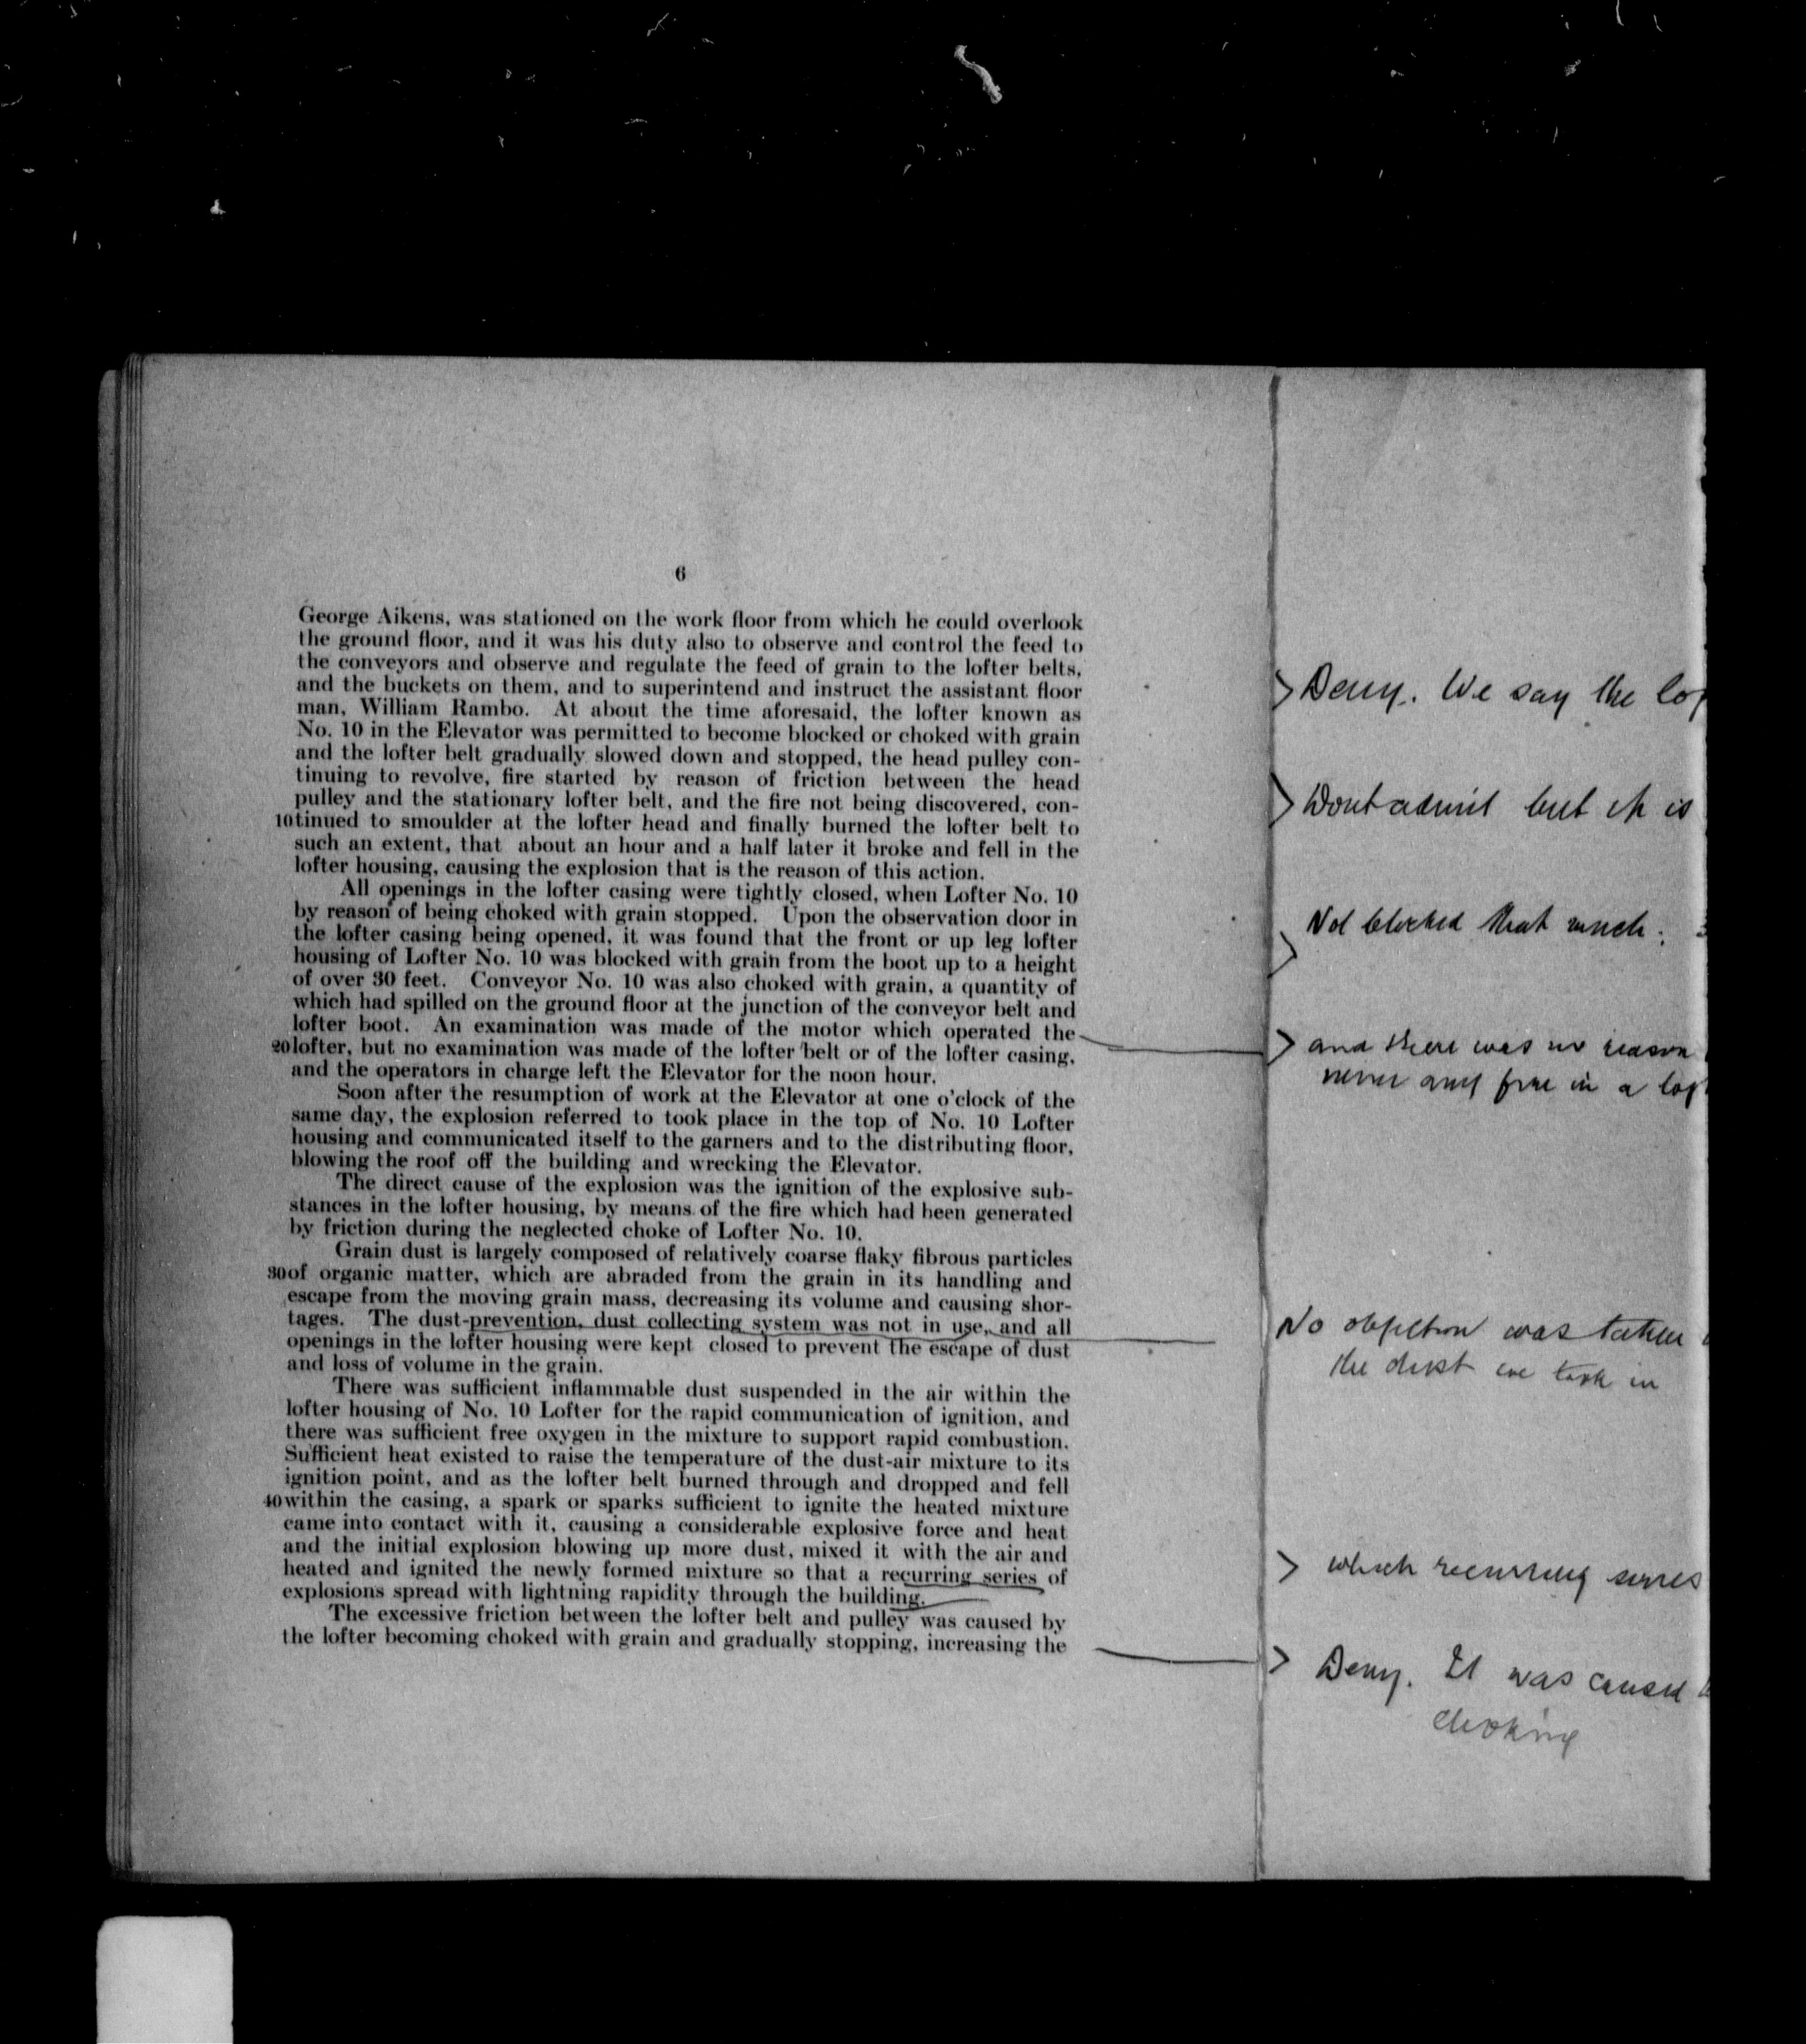 6
George Aikens, was stationed on the work floor from which he could overlook
the ground floor, and it was his duty also to observe and control the feed to
the conveyors and observe and regulate the feed of grain to the lofter belts,
and the buckets on them, and to superintend and instruct the assistant floor
man, William Rambo. At about the time aforesaid, the lofter known as
No. 10 in the Elevator was permitted to become blocked or choked with grain
and the lofter belt gradually slowed down and stopped, the head pulley con-
tinuing to revolve, fire started by reason of friction between the head
pulley and the stationary lofter belt, and the fire not being discovered, con-
10 tinued to smoulder at the lofter head and finally burned the lofter belt to
such an extent, that about an hour and a half later it broke and fell in the
lofter housing, causing the explosion that is the reason of this action.
All openings in the lofter casing were tightly closed, when Lofter No. 10
by reason of being choked with grain stopped. Upon the observation door in
the lofter casing being opened, it was found that the front or up leg lofter
housing of Lofter No. 10 was blocked with grain from the boot up to a height
of over 30 feet. Conveyor No. 10 was also choked with grain, a quantity of
which had spilled on the ground floor at the junction of the conveyor belt and
lofter boot. An examination was made of the motor which operated the
20 lofter, but no examination was made of the lofter belt or of the lofter casing,
and the operators in charge left the Elevator for the noon hour.
Soon after the resumption of work at the Elevator at one o'clock of the
same day, the explosion referred to took place in the top of No. 10 Lofter
housing and communicated itself to the garners and to the distributing floor,
blowing the roof off the building and wrecking the Elevator.
The direct cause of the explosion was the ignition of the explosive sub-
stances in the lofter housing, by means of the fire which had been generated
by friction during the neglected choke of Lofter No. 10.
Grain dust is largely composed of relatively coarse flaky fibrous particles
30 of organic matter, which are abraded from the grain in its handling and
escape from the moving grain mass, decreasing its volume and causing shor-
tages. The dust-prevention, dust collecting system was not in use, and all
openings in the lofter housing were kept closed to prevent the escape of dust
and loss of volume in the grain.
There was sufficient inflammable dust suspended in the air within the
lofter housing of No. 10 Lofter for the rapid communication of ignition, and
there was sufficient free oxygen in the mixture to support rapid combustion.
Sufficient heat existed to raise the temperature of the dust-air mixture to its
ignition point, and as the lofter belt burned through and dropped and fell
40 within the casing, a spark or sparks sufficient to ignite the heated mixture
came into contact with it, causing a considerable explosive force and heat
and the initial explosion blowing up more dust, mixed it with the air and
heated and ignited the newly formed mixture so that a recurring series of
explosions spread with lightning rapidity through the building.
The excessive friction between the lofter belt and pulley was caused by
the lofter becoming choked with grain and gradually stopping, increasing the
Deny. We say the
Dont admit but it is
Not blocked that much.
and there was no reason
never any fire in a
No objection was taken
the dust we took in
which recurring series
Deny. It was caused
choking